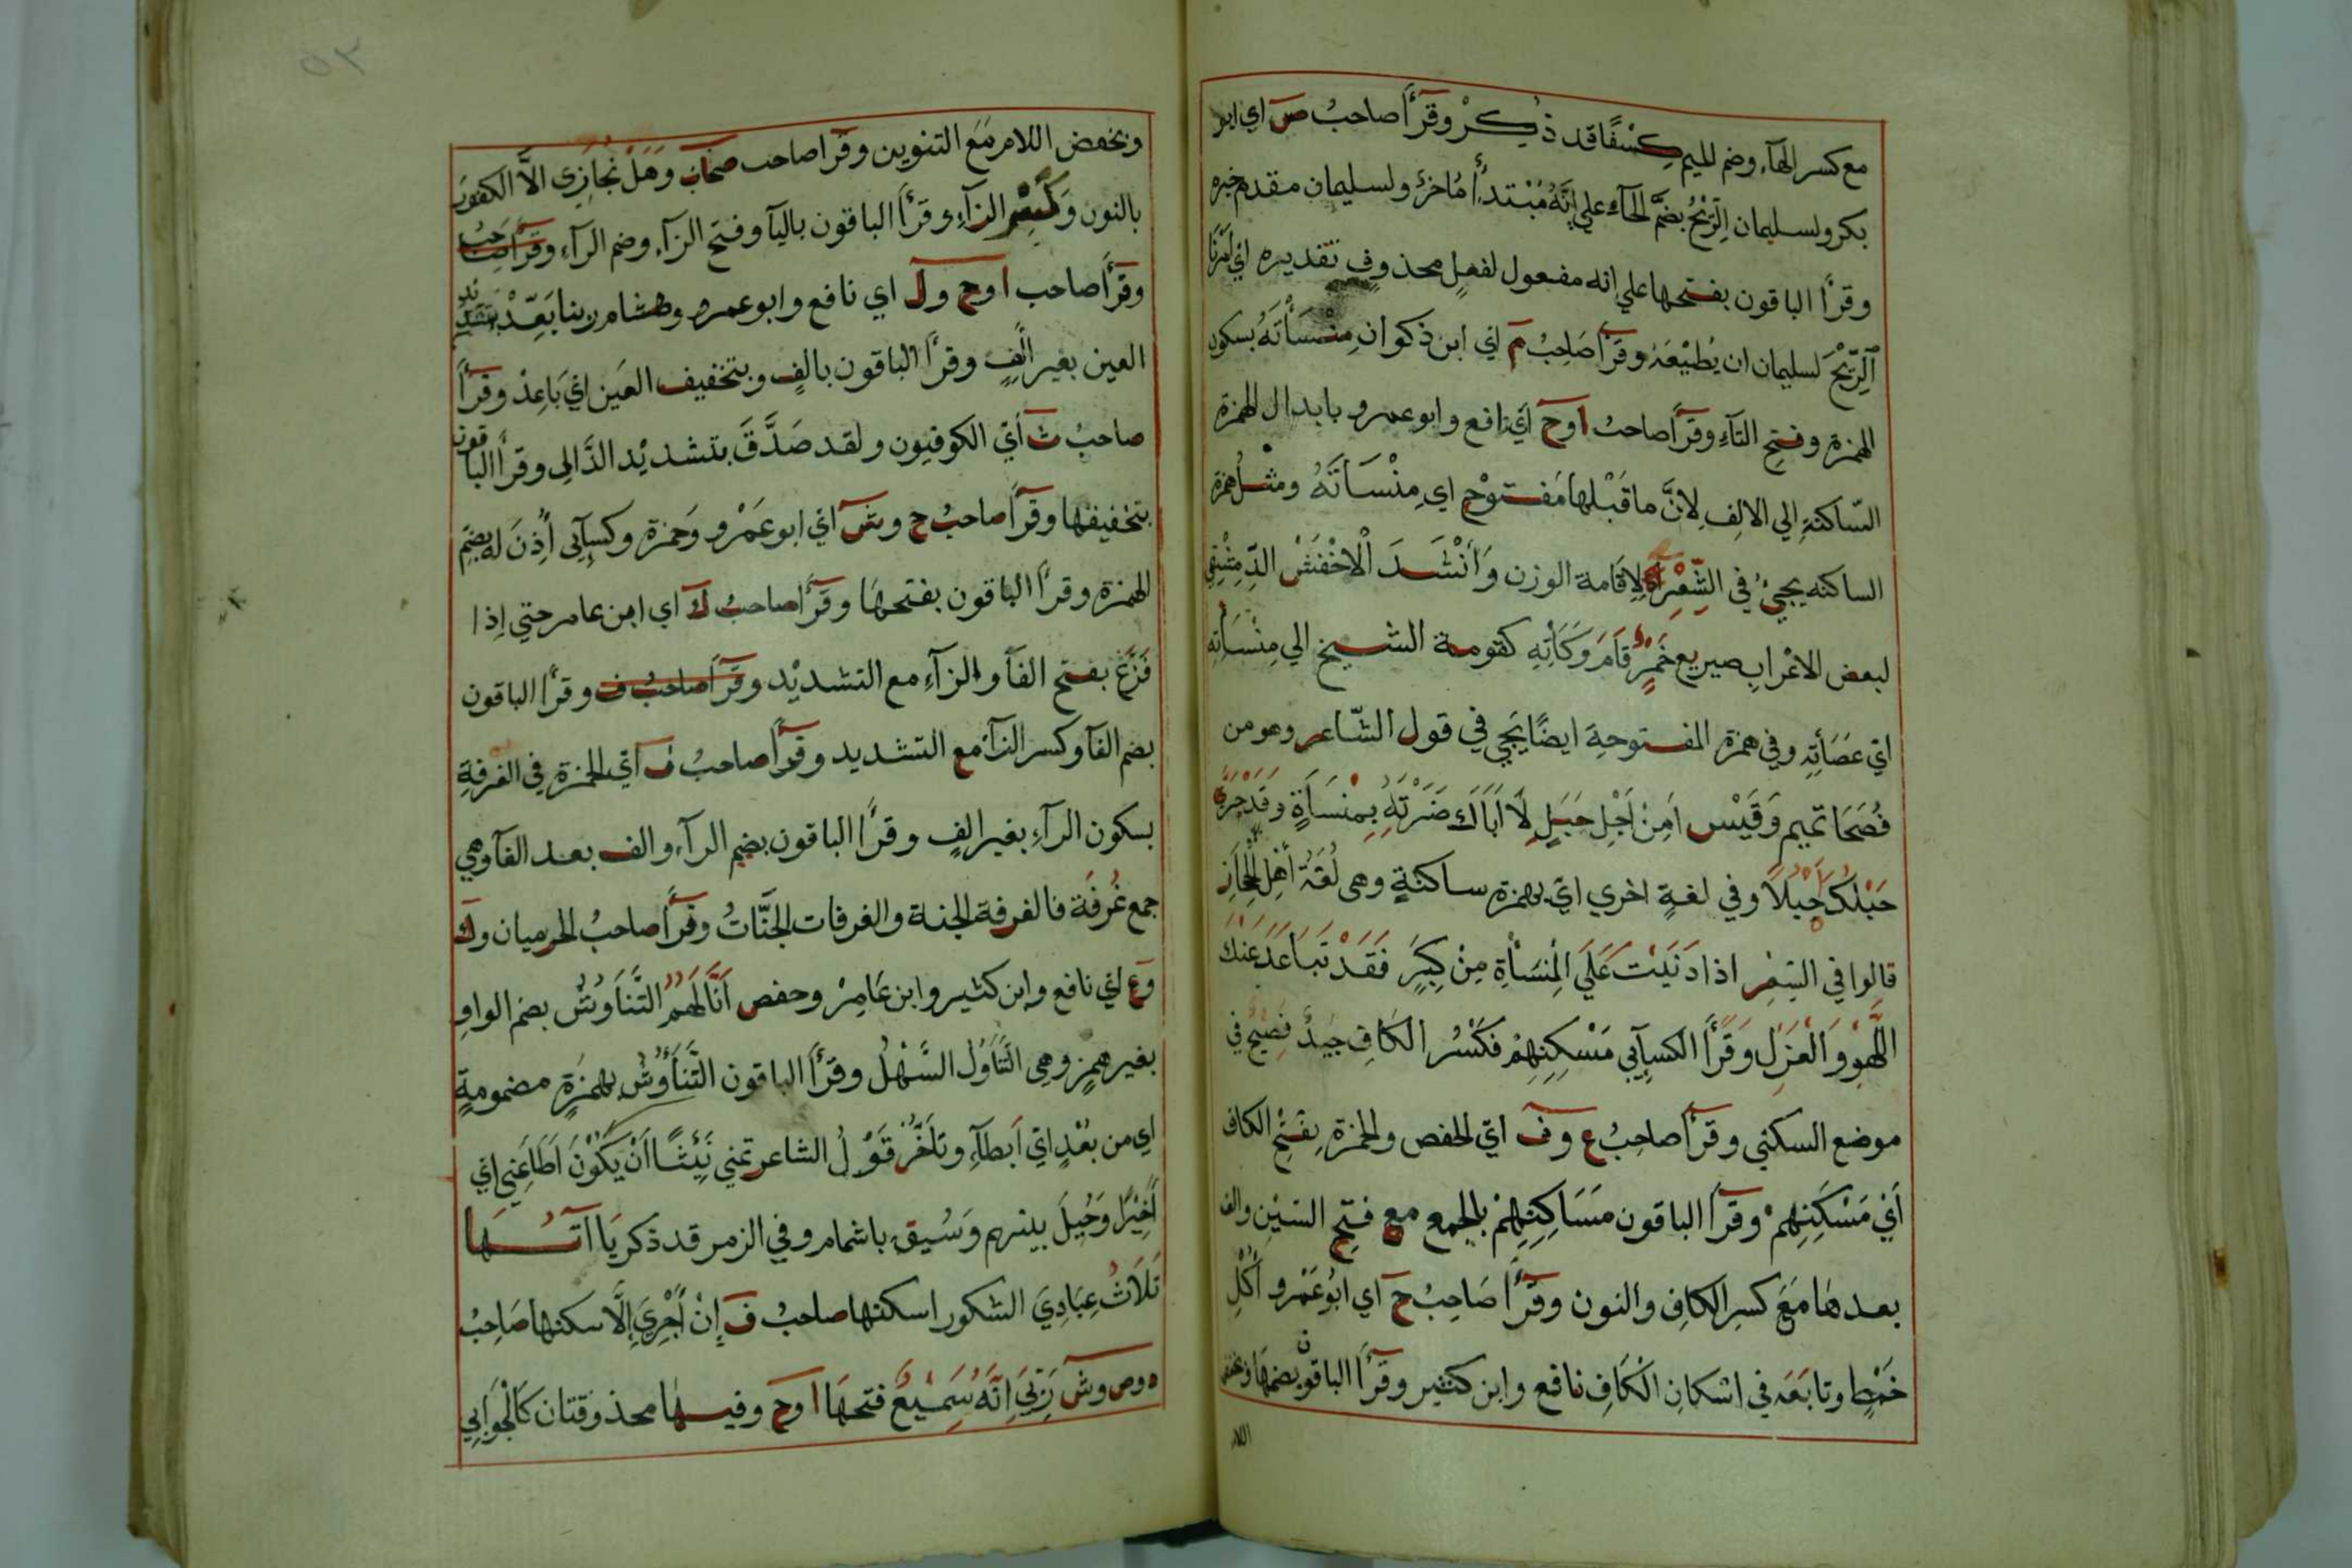 مع كسر الهآء وضم الميم كِسْفًا قد ذُكِرْ وقرأ صاحبُ ص اي ابو
بكر ولسليمان الرّيْحُ بضمّ الحآء علي انّه مُبْتدأ مُاخرٌ ولسليمان مقدم خبره
وقرأ الباقون بفتحها علي انه مفعول لفعلٍ محذوفٍ تقديره اي امرنا
الرّيْحَ لسليمان ان يُطيْعَهُ وقرأ صَاحِبُ م اي ابن ذكوان مِنْسَأْتَهُ بسكون
الهمزة وفتح التآءِ وقرأ صاحبُ ا وح اي نافع وابو عمرو بابدال الهمزة
السّاكنةِ الي الالِف لِانَّ ما قَبْلها مَفتوْح اي مِنْسَاتَهُ ومثلُ همزة
الساكنه يجيُ في الشِّعْرِ لِاقامة الوزن وَانْشَدَ الْاخْفَشْ الدِّمِشْقِي
لبعض الاعْرابِ صيريع خَمْرٍ قَامَ وَكَاتِهِ كقومة الشيخ الي مِنْسَأتِهِ
اي عَصَأتِهِ وفي همزة المفتوحة ايضًا يَجي في قول الشّاعر وهو من
فُصَحَا تميم وَقَيْس اَمِنْ اَجْلِ حَبَلٍ لَا اَبَاَكَ ضَرَبْتَهُ بِمِنْسَأَةٍ وقَدْ جَرَّ
حَبْلكَ حَبْلاً وفي لغةٍ اخري اي بهمزة ساكنةٍ وهي لُغَةُ اَهْلِ الْحِجَازِ
قالوا في الشعر اذا دَنَيْت عَلَي الْمِنْسَأْةِ مِنْ كِبَرٍ فَقَدْ تَبَاعَدَ عَنْكَ
اللَّهْوُ وَالْغَزَل وَقَرَأَ الكسآيي مَسْكِنِهِمْ فكَسْرُ الكَاف جيّدٌ فصيحٌ في
موضع السكني وقرأ صاحبُ ع وف اي الحفص والحمزة بفتح الكاف
اَيْ مَسْكَنِهِمْ وقرأ الباقون مَسَاكِنِهِمْ بالجمع مع فتح السّيْن والف
بعدها مَعَ كسر الكافِ والنون وقرأ صَاحِبُ ح اي ابُو عَمْرو اُكُلِ
خَمْطٍ وتابَعَه في اسْكانِ الْكَافِ نافع وابن كثير وقرأ الباقون بضمها وخفض
اللام
وبخفض اللام مَعَ التنوين وقرأ صاحب صحاب وهَلْ نُجَازِي الاَّ الكفور
بالنون وكسر الزآءِ وقرأ الباقون باليآ وفتح الزآء وضم الرآء وقرأ صاحبُ
وقرأ صاحب ا وح ول اي نافع وابو عمرو وهشام ربنا بَعِّدْ بتشديد
العين بغير الفٍ وقرأ الباقون بالفٍ وبتخفيف العَين اي بَاعِدْ وقرأ
صاحبُ ث أي الكوفيون ولقد صَدَّقَ بتشديْد الدَّالِ وقرأ الباقون
بتخفيفها وقرأ صاحبُ ح وش اي ابو عَمْرو وَحمزة وكسآيي اُذِنَ له بضم
الهمزة وقرأ الباقون بفتحهَا وقَرَأَ صاحبُ ك اي ابن عامر حتي اِذا
فَزَّعَ بفتح الفآ والزآءِ مع التشديْد وقرأ صاحبُ ف وقرأ الباقون
بضم الفآ وكسر الزآء مع التشديد وقرأ صاحبُ ف أي الحمزة في الغرفةِ
بسكون الرآءِ بغير الفٍ وقرأ الباقون بضم الرآء والف بعد الفآ وهي
جمع غُرفَة فالغرفة الجنة والغرفات الجَنَّاتُ وقرأ صاحبُ الحرميان وك
وع اي نافع وابن كثير وابن عَامِرْ وحفص اَنَّا لَهُمُ التَّنَاوُشُ بضم الواوِ
بغير همزٍ وهي التَّنَاوُل السَّهْلُ وقرأ الباقون التَّنَأوُشُ بهمزةٍ مضمومةٍ
اي من بعْدٍ اي اَبطآءِ وتاَخُّرٌ قَوْلُ الشاعر تمني نَيْئشًا اَنْ يَكُوْنَ اَطَاعَنِي اي
اَخِيْرًا وَحِيْلَ بينهم وَسُيق باشمام وفي الزمر قد ذكر يَا اتُهَا
ثَلاَثُ عِبَادِيَ الشكور اسكنها صاحبُ ف إنْ اَجْرِيَ اِلَّا سكنها صَاحِبُ
ه وص وش رَبِّيَ اِنَّهُ سَمِيْعٌ فتحهَا ا وح وفيها محذوفتان كَالْجَوَابِي